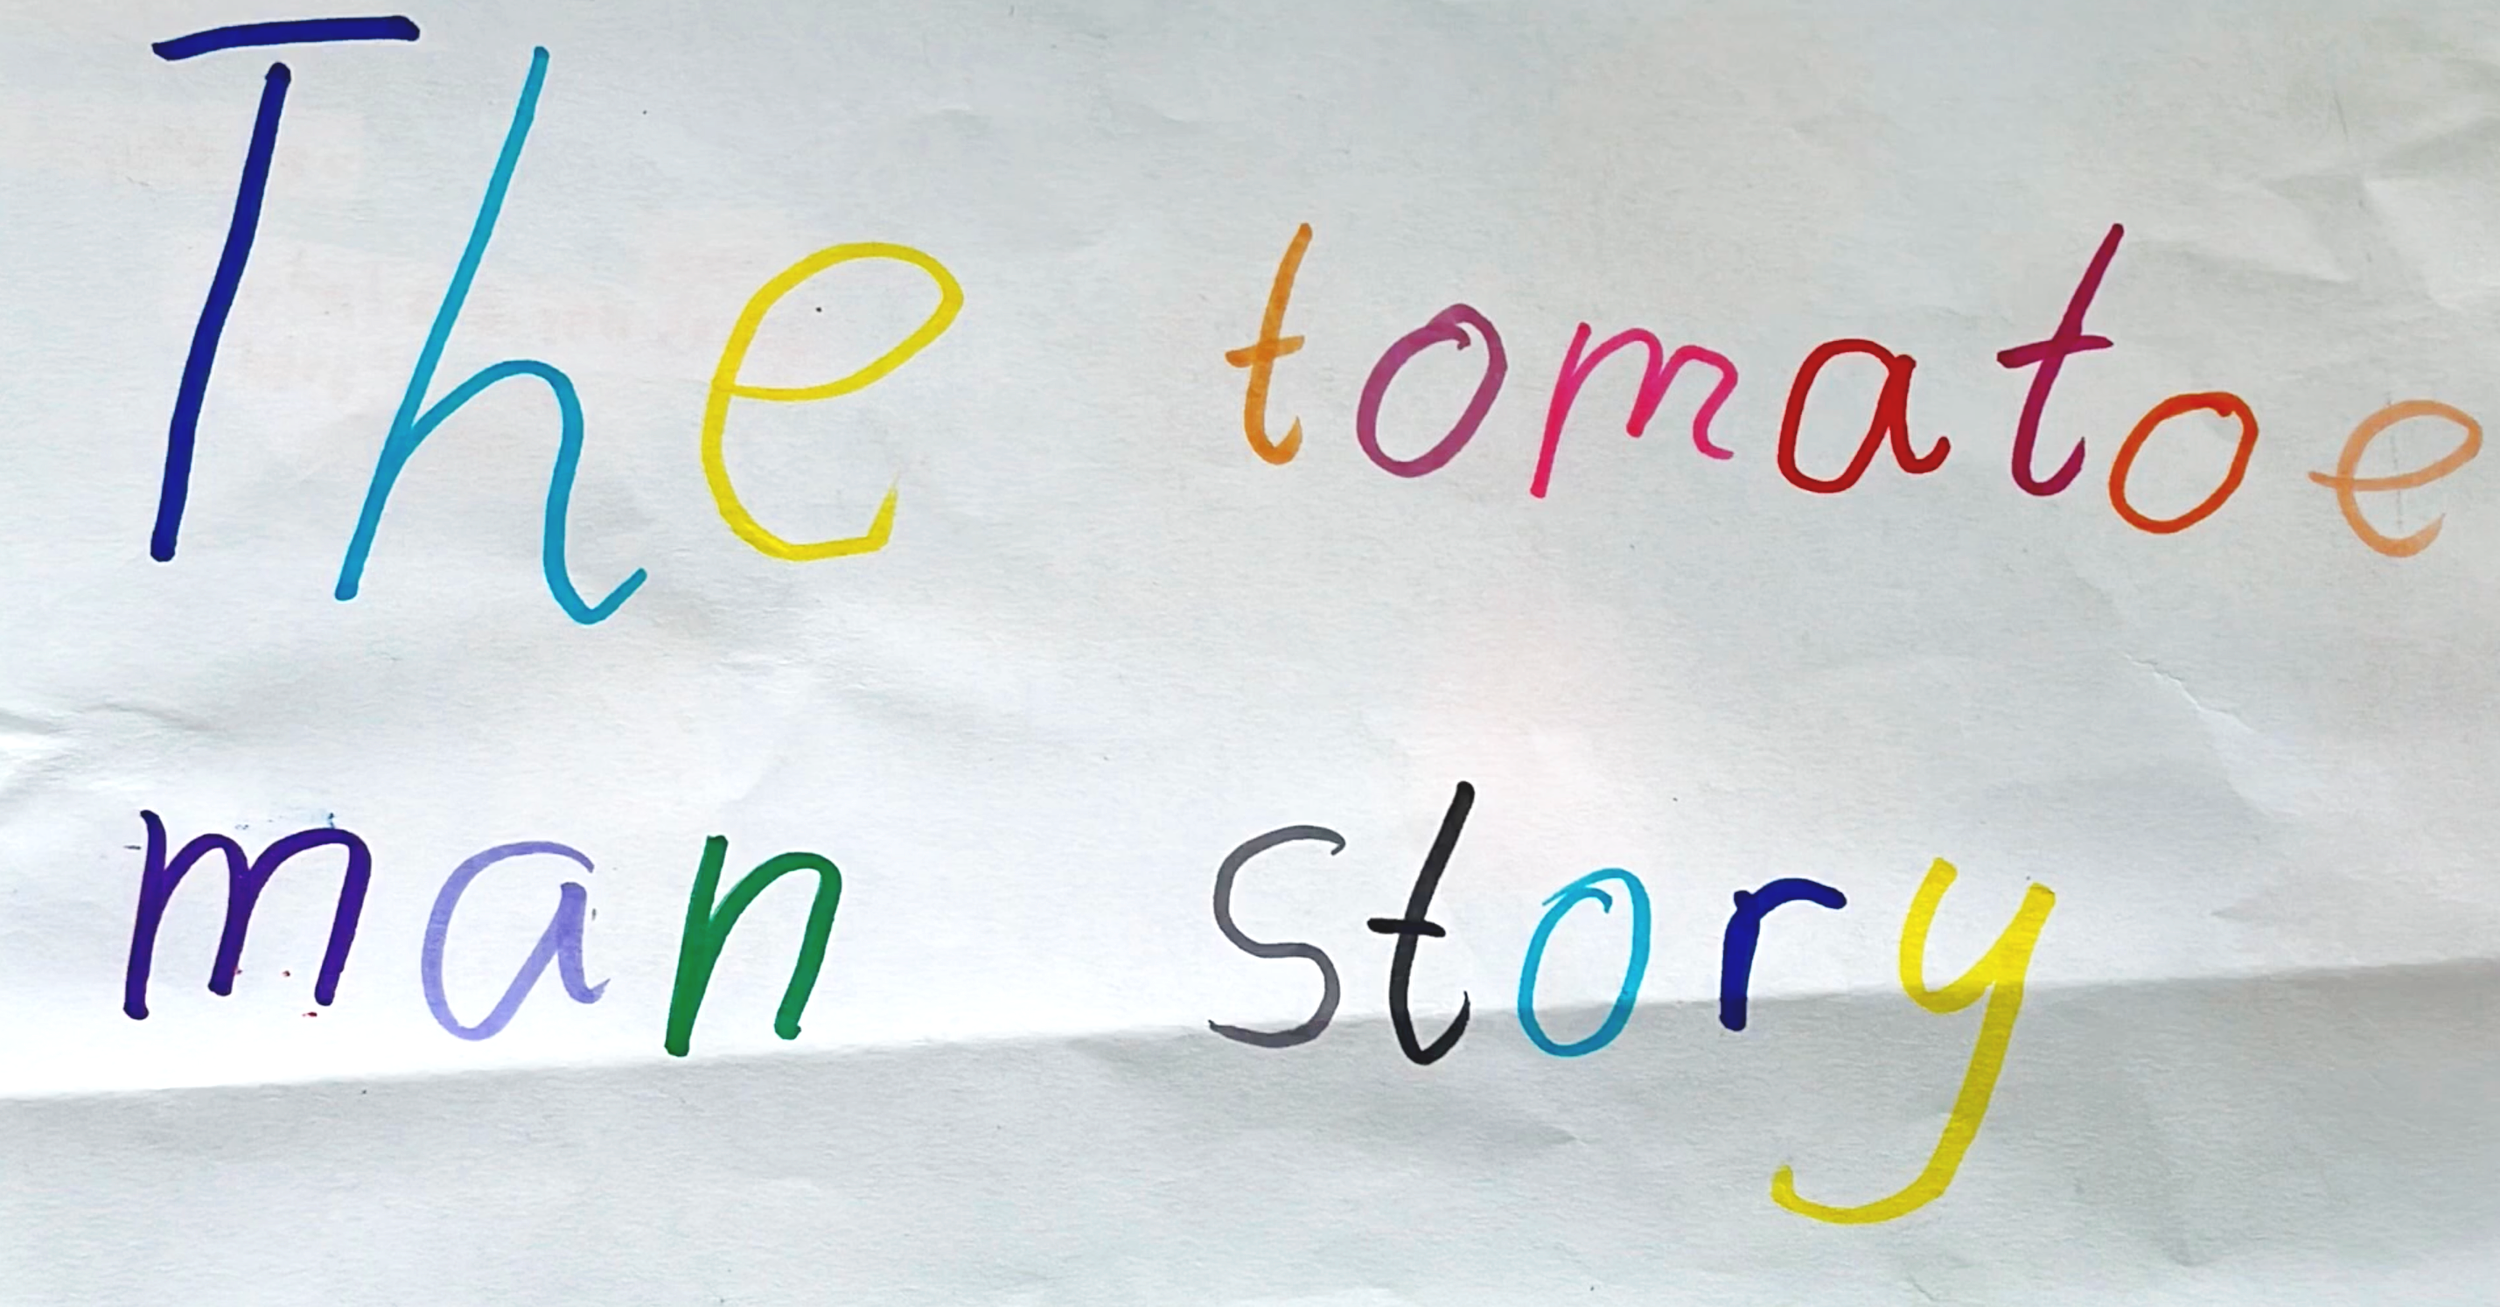 The tomatoe
man story